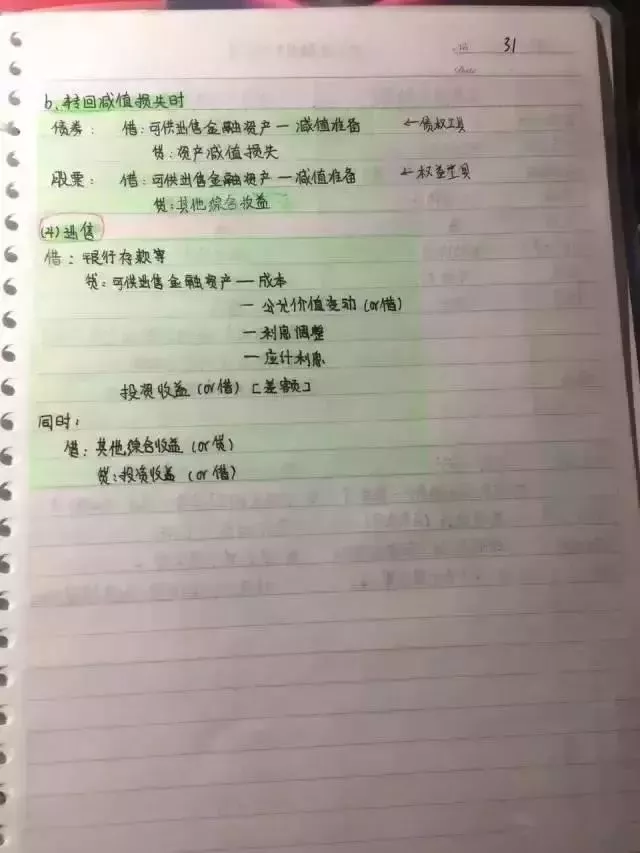 No 31
Date
b. 转回减值损失时
债券: 借: 可供出售金融资产 — 减值准备 ← 债权工具
贷: 资产减值损失
股票: 借: 可供出售金融资产 — 减值准备 ← 权益工具
贷: 其他综合收益
(4) 出售
借: 银行存款等
贷: 可供出售金融资产 — 成本
— 公允价值变动 (or借)
— 利息调整
— 应计利息
投资收益 (or借) [差额]
同时:
借: 其他综合收益 (or贷)
贷: 投资收益 (or借)